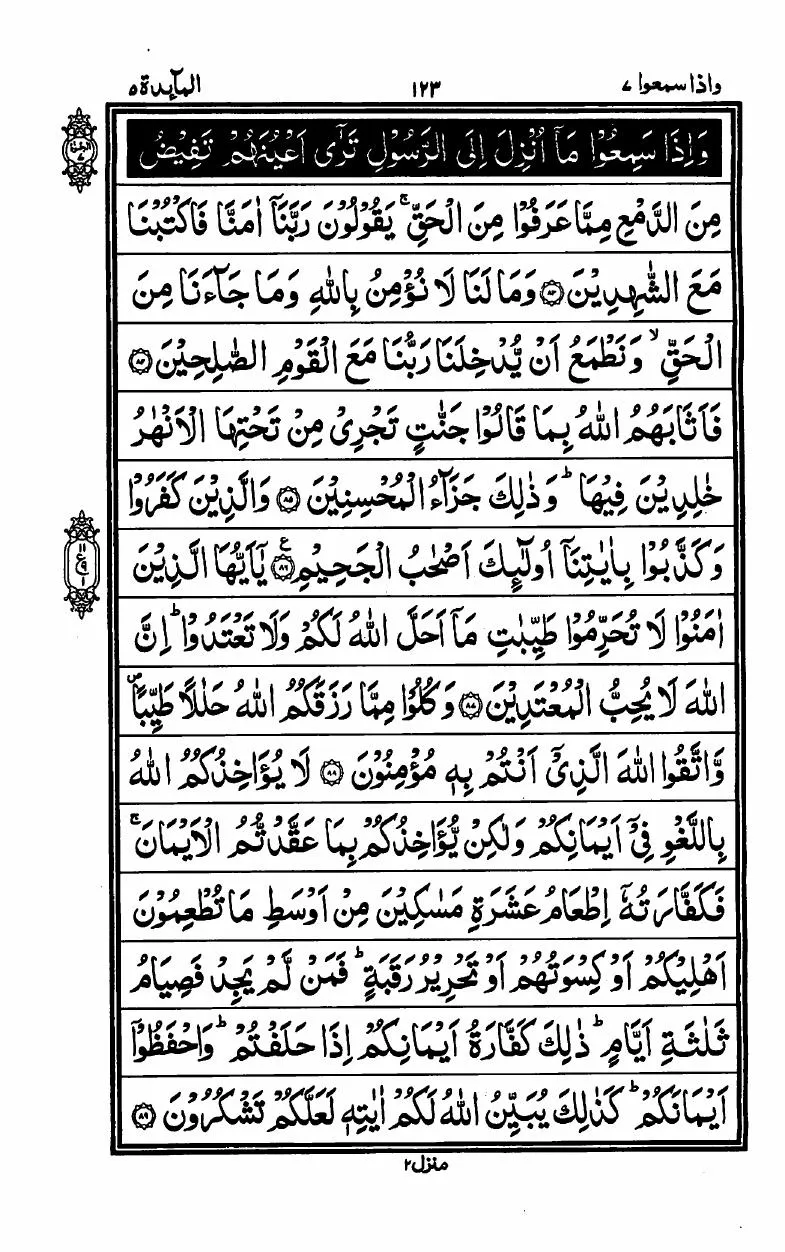 واذا سمعوا ۷ ۱۲۳ المآىِٕدة ۵
وَاِذَا سَمِعُوْا مَاۤ اُنْزِلَ اِلَى الرَّسُوْلِ تَرٰۤى اَعْیُنَهُمْ تَفِیْضُ
مِنَ الدَّمْعِ مِمَّا عَرَفُوْا مِنَ الْحَقِّ ۚ یَقُوْلُوْنَ رَبَّنَاۤ اٰمَنَّا فَاكْتُبْنَا
مَعَ الشّٰهِدِیْنَ ۝۸۳ وَمَا لَنَا لَا نُؤْمِنُ بِاللّٰهِ وَمَا جَآءَنَا مِنَ
الْحَقِّ ۙ وَنَطْمَعُ اَنْ یُّدْخِلَنَا رَبُّنَا مَعَ الْقَوْمِ الصّٰلِحِیْنَ ۝۸۴
فَاَثَابَهُمُ اللّٰهُ بِمَا قَالُوْا جَنّٰتٍ تَجْرِیْ مِنْ تَحْتِهَا الْاَنْهٰرُ
خٰلِدِیْنَ فِیْهَا ؕ وَذٰلِكَ جَزَآءُ الْمُحْسِنِیْنَ ۝۸۵ وَالَّذِیْنَ كَفَرُوْا
وَكَذَّبُوْا بِاٰیٰتِنَاۤ اُولٰٓىِٕكَ اَصْحٰبُ الْجَحِیْمِ ۝۸۶ ع یٰۤاَیُّهَا الَّذِیْنَ
اٰمَنُوْا لَا تُحَرِّمُوْا طَیِّبٰتِ مَاۤ اَحَلَّ اللّٰهُ لَكُمْ وَلَا تَعْتَدُوْا ؕ اِنَّ
اللّٰهَ لَا یُحِبُّ الْمُعْتَدِیْنَ ۝۸۷ وَكُلُوْا مِمَّا رَزَقَكُمُ اللّٰهُ حَلٰلًا طَیِّبًا ۪
وَّاتَّقُوا اللّٰهَ الَّذِیْۤ اَنْتُمْ بِهٖ مُؤْمِنُوْنَ ۝۸۸ لَا یُؤَاخِذُكُمُ اللّٰهُ
بِاللَّغْوِ فِیْۤ اَیْمَانِكُمْ وَلٰكِنْ یُّؤَاخِذُكُمْ بِمَا عَقَّدْتُّمُ الْاَیْمَانَ ۚ
فَكَفَّارَتُهٗۤ اِطْعَامُ عَشَرَةِ مَسٰكِیْنَ مِنْ اَوْسَطِ مَا تُطْعِمُوْنَ
اَهْلِیْكُمْ اَوْ كِسْوَتُهُمْ اَوْ تَحْرِیْرُ رَقَبَةٍ ؕ فَمَنْ لَّمْ یَجِدْ فَصِیَامُ
ثَلٰثَةِ اَیَّامٍ ؕ ذٰلِكَ كَفَّارَةُ اَیْمَانِكُمْ اِذَا حَلَفْتُمْ ؕ وَاحْفَظُوْۤا
اَیْمَانَكُمْ ؕ كَذٰلِكَ یُبَیِّنُ اللّٰهُ لَكُمْ اٰیٰتِهٖ لَعَلَّكُمْ تَشْكُرُوْنَ ۝۸۹
منزل ۲